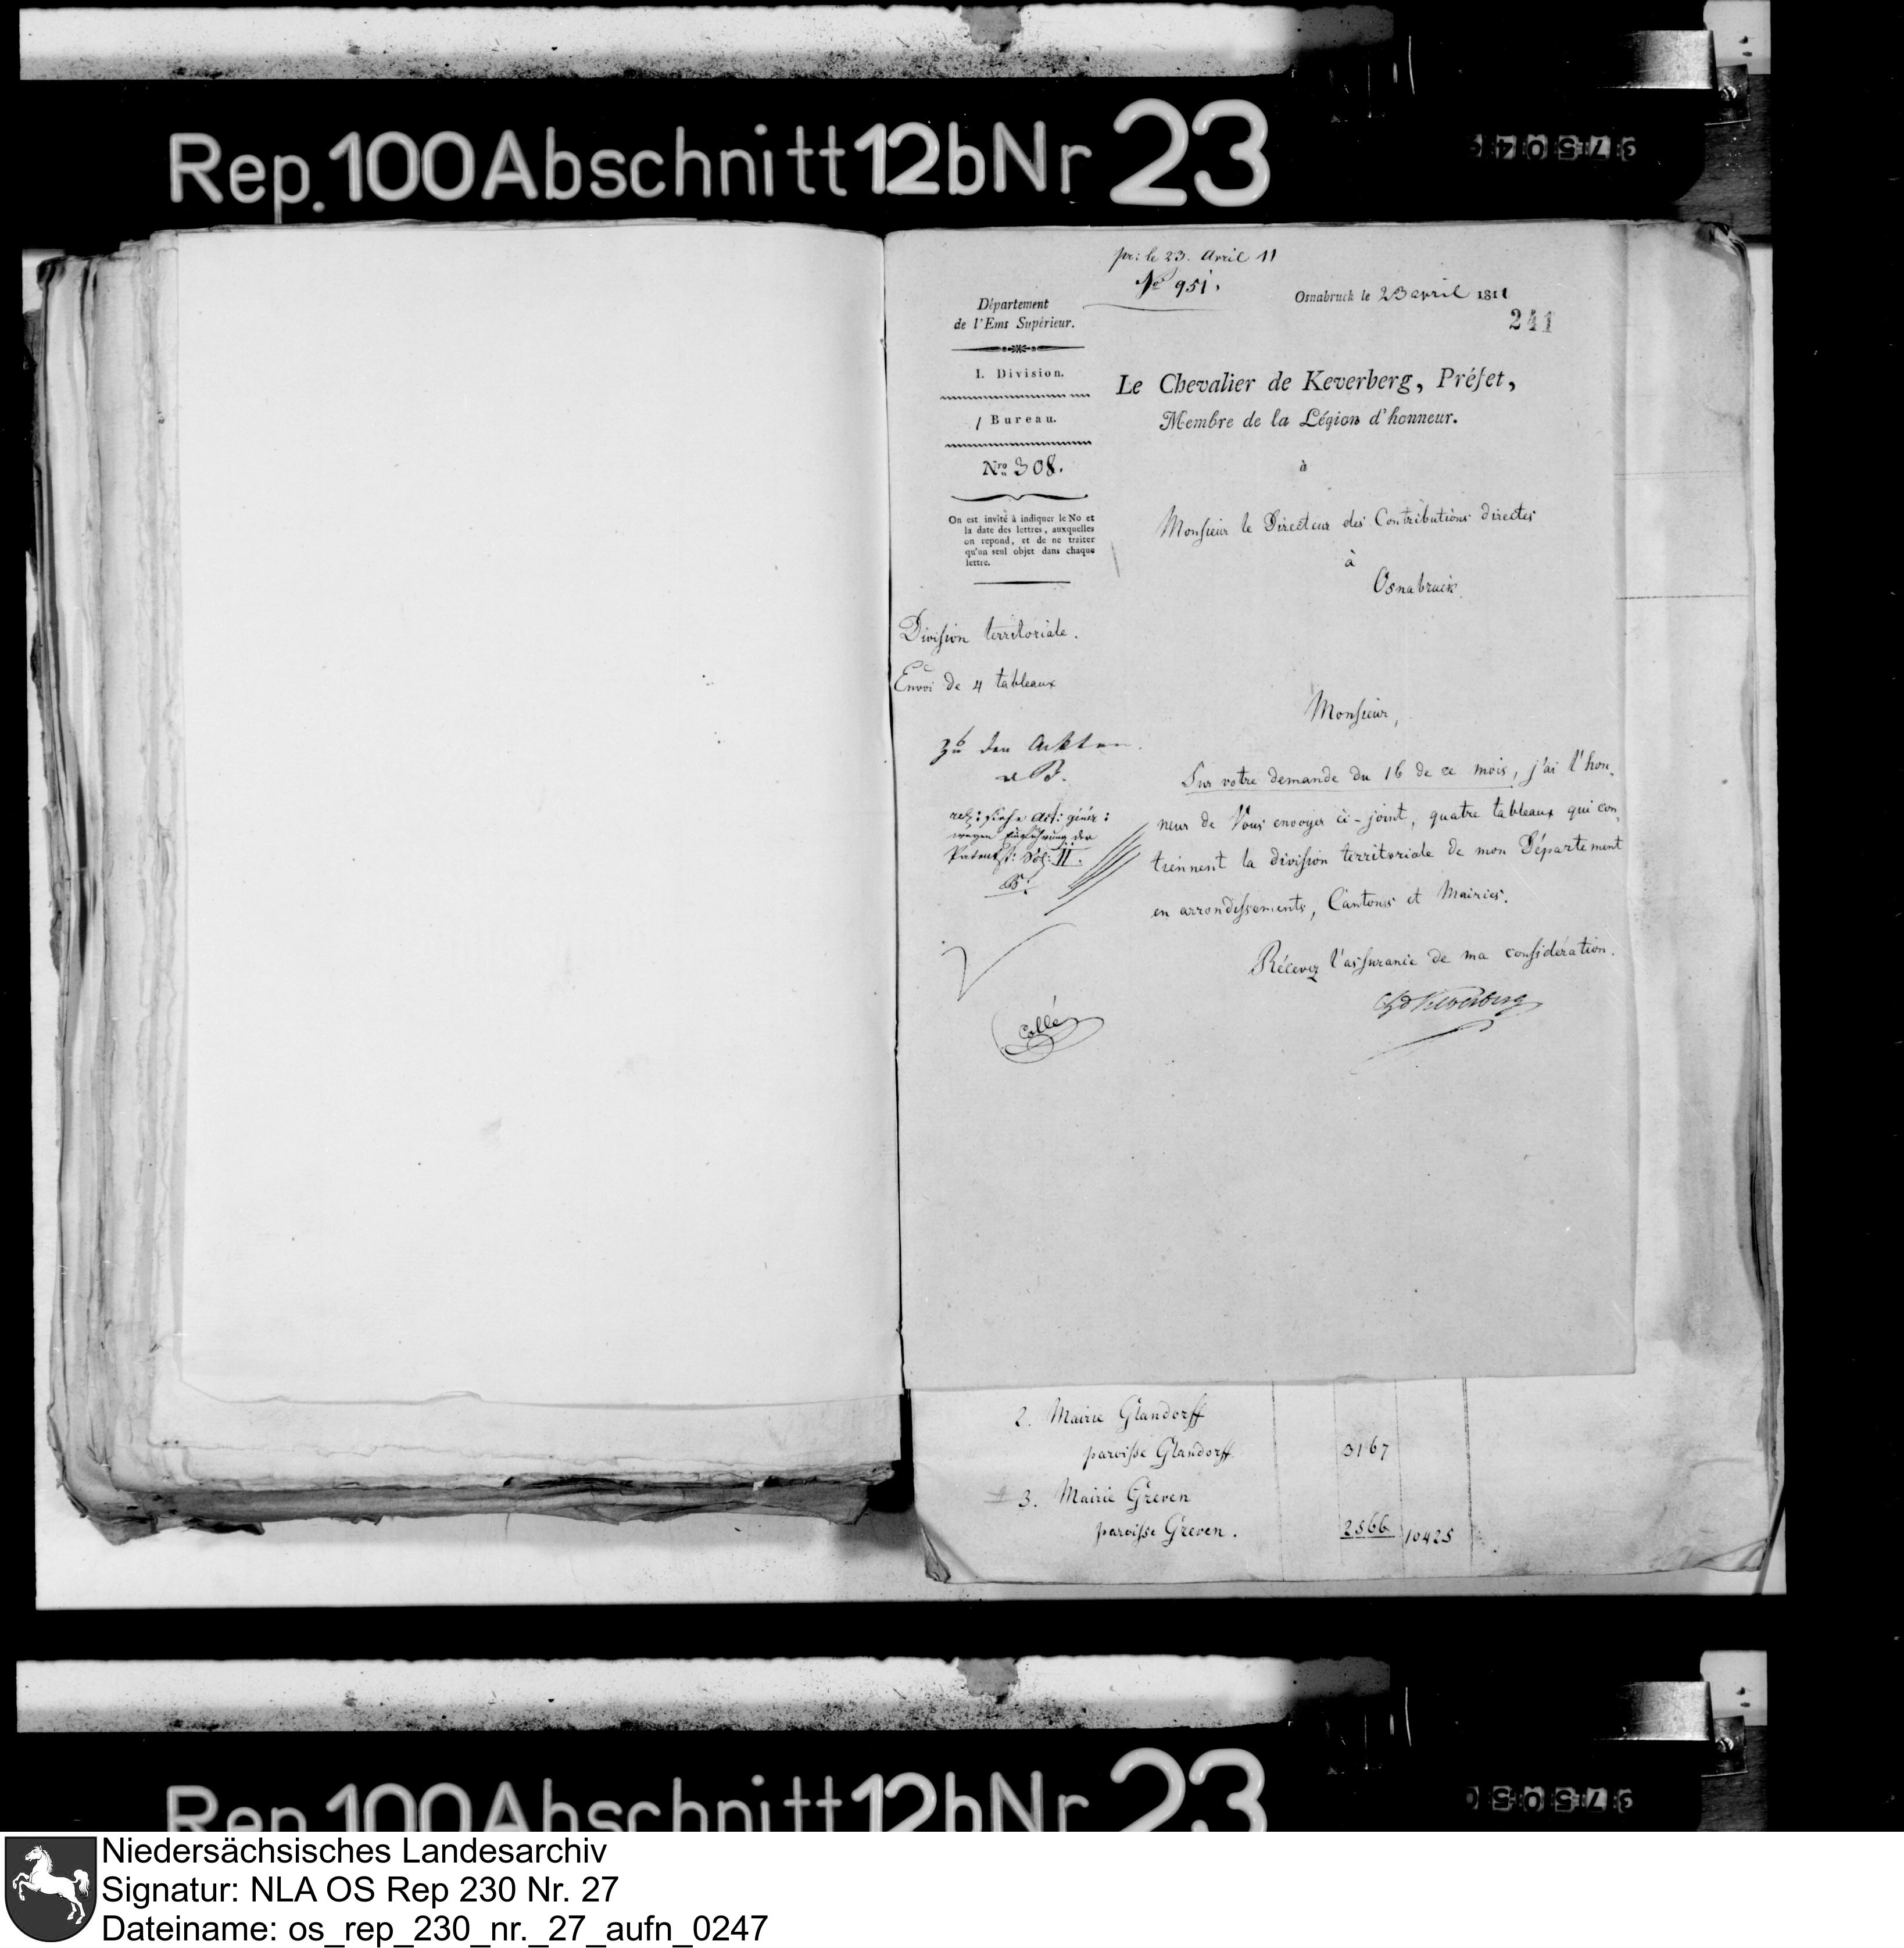 Rep. 100 Abschnitt 12b Nr 23
pr: le 23. Avril 11
No 951.
Département
de l'Ems Supérieur.
Osnabruck le 23 avril 1811
241
I. Division.
1 Bureau.
Nro 308.
On est invité à indiquer le No et
la date des lettres, auxquelles
on repond, et de ne traiter
qu'un seul objet dans chaque
lettre.
Le Chevalier de Keverberg, Préfet,
Membre de la Légion d'honneur.
à
Monsieur le Directeur des Contributions directes
à
Osnabruck.
Division territoriale.
Envoi de 4 tableaux
Monsieur,
Sur votre demande du 16 de ce mois, j'ai l'hon,
neur de Vous envoyer ci-joint, quatre tableaux qui con,
tiennent la division territoriale de mon Département
en arrondissements, Cantons et Mairies.
Récevez l'assurance de ma considération.
Ch d Keverberg
zu den Ackten.
wegen Einführung der
Patentst: Vol: II.
B.
Collé
2. Mairie Glandorff
paroisse Glandorff 3167
3. Mairie Greven
paroisse Greven. 2566 10425
Rep. 100 Abschnitt 12b Nr 23
Niedersächsisches Landesarchiv
Signatur: NLA OS Rep 230 Nr. 27
Dateiname: os_rep_230_nr._27_aufn_0247